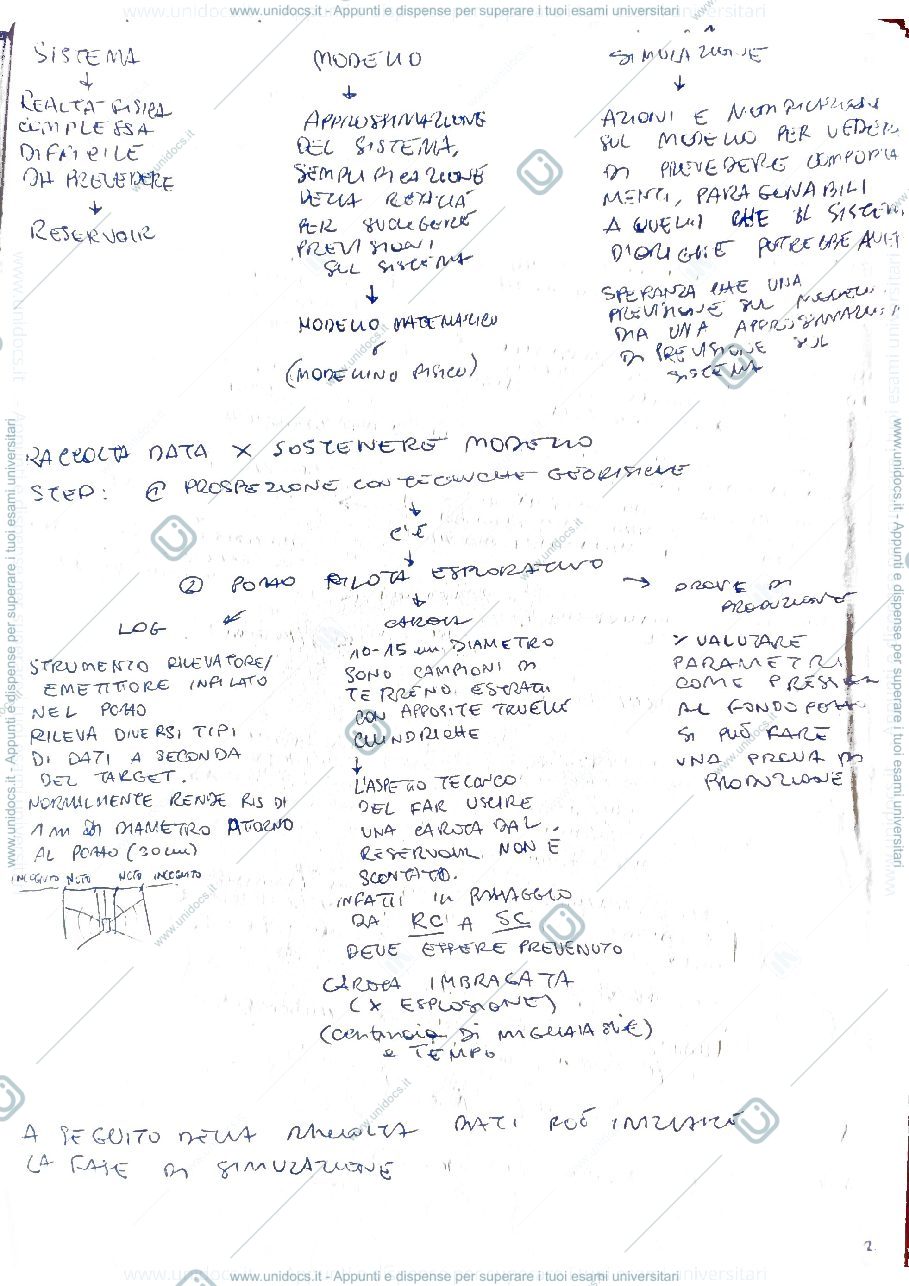 www.unidocs.it - Appunti e dispense per superare i tuoi esami universitari
SISTEMA
REALTÀ FISICA
COMPLESSA
DIFFICILE
DA PREVEDERE
RESERVOIR
MODELLO
APPROSSIMAZIONE
DEL SISTEMA,
SEMPLIFICAZIONE
DELLA REALTÀ
PER SVOLGERE
PREVISIONI
SUL SISTEMA
MODELLO MATEMATICO
o
(MODELLINO FISICO)
SIMULAZIONE
AZIONI E
SUL MODELLO PER
DI PREVEDERE COMPORTA
MENTI, PARAGONABILI
A QUELLI CHE IL SISTEM
D'ORIGINE POTREBBE
SPERANZA CHE UNA
PREVISIONE SUL MODELLO
DIA UNA
DI PREVISIONE SUL
SISTEMA
RACCOLTA DATA X SOSTENERE MODELLO
STEP: ① PROSPEZIONE CON TECNICHE GEOFISICHE
C'È
② POZZO PILOTA ESPLORATIVO
LOG
STRUMENTO RILEVATORE/
EMETTITORE INFILATO
NEL POZZO
RILEVA DIVERSI TIPI
DI DATI A SECONDA
DEL TARGET.
NORMALMENTE RENDE RIS DI
1 m DI DIAMETRO ATTORNO
AL POZZO (30 cm)
INCOGNITO NOTO NOTO INCOGNITO
CAROTA
10-15 cm DIAMETRO
SONO CAMPIONI DI
TERRENO ESTRATTI
CON APPOSITE TRIVELLE
CILINDRICHE
L'ASPETTO TECNICO
DEL FAR USCIRE
UNA CAROTA DAL
RESERVOIR NON È
SCONTATO.
INFATTI IL PASSAGGIO
DA RC A SC
DEVE ESSERE PREVENUTO
CAROTA IMBRAGATA
(X ESPLOSIONE)
(centinaia DI MIGLIAIA DI €)
e TEMPO
PROVE DI
PRODUZIONE
X VALUTARE
PARAMETRI
COME PRESSIONE
AL FONDO POZZO
SI PUÒ FARE
UNA PROVA DI
PRODUZIONE
A SEGUITO DELLA RACCOLTA DATI PUÒ INIZIARE
LA FASE DI SIMULAZIONE
2
www.unidocs.it - Appunti e dispense per superare i tuoi esami universitari